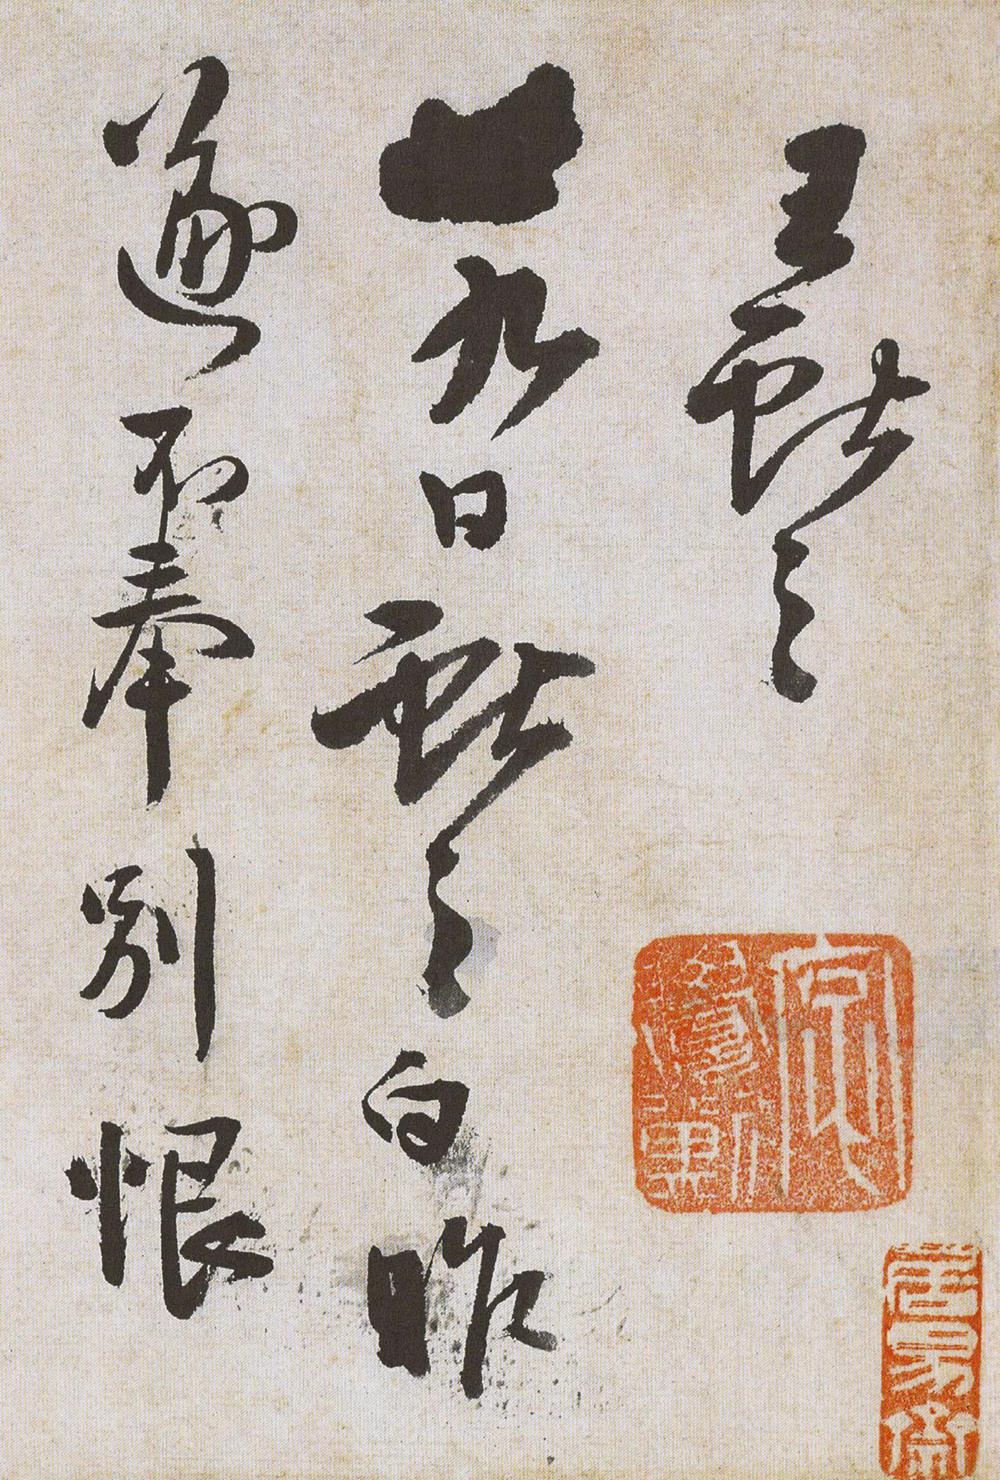 王獻之
廿九日獻之白昨
遂不奉別恨